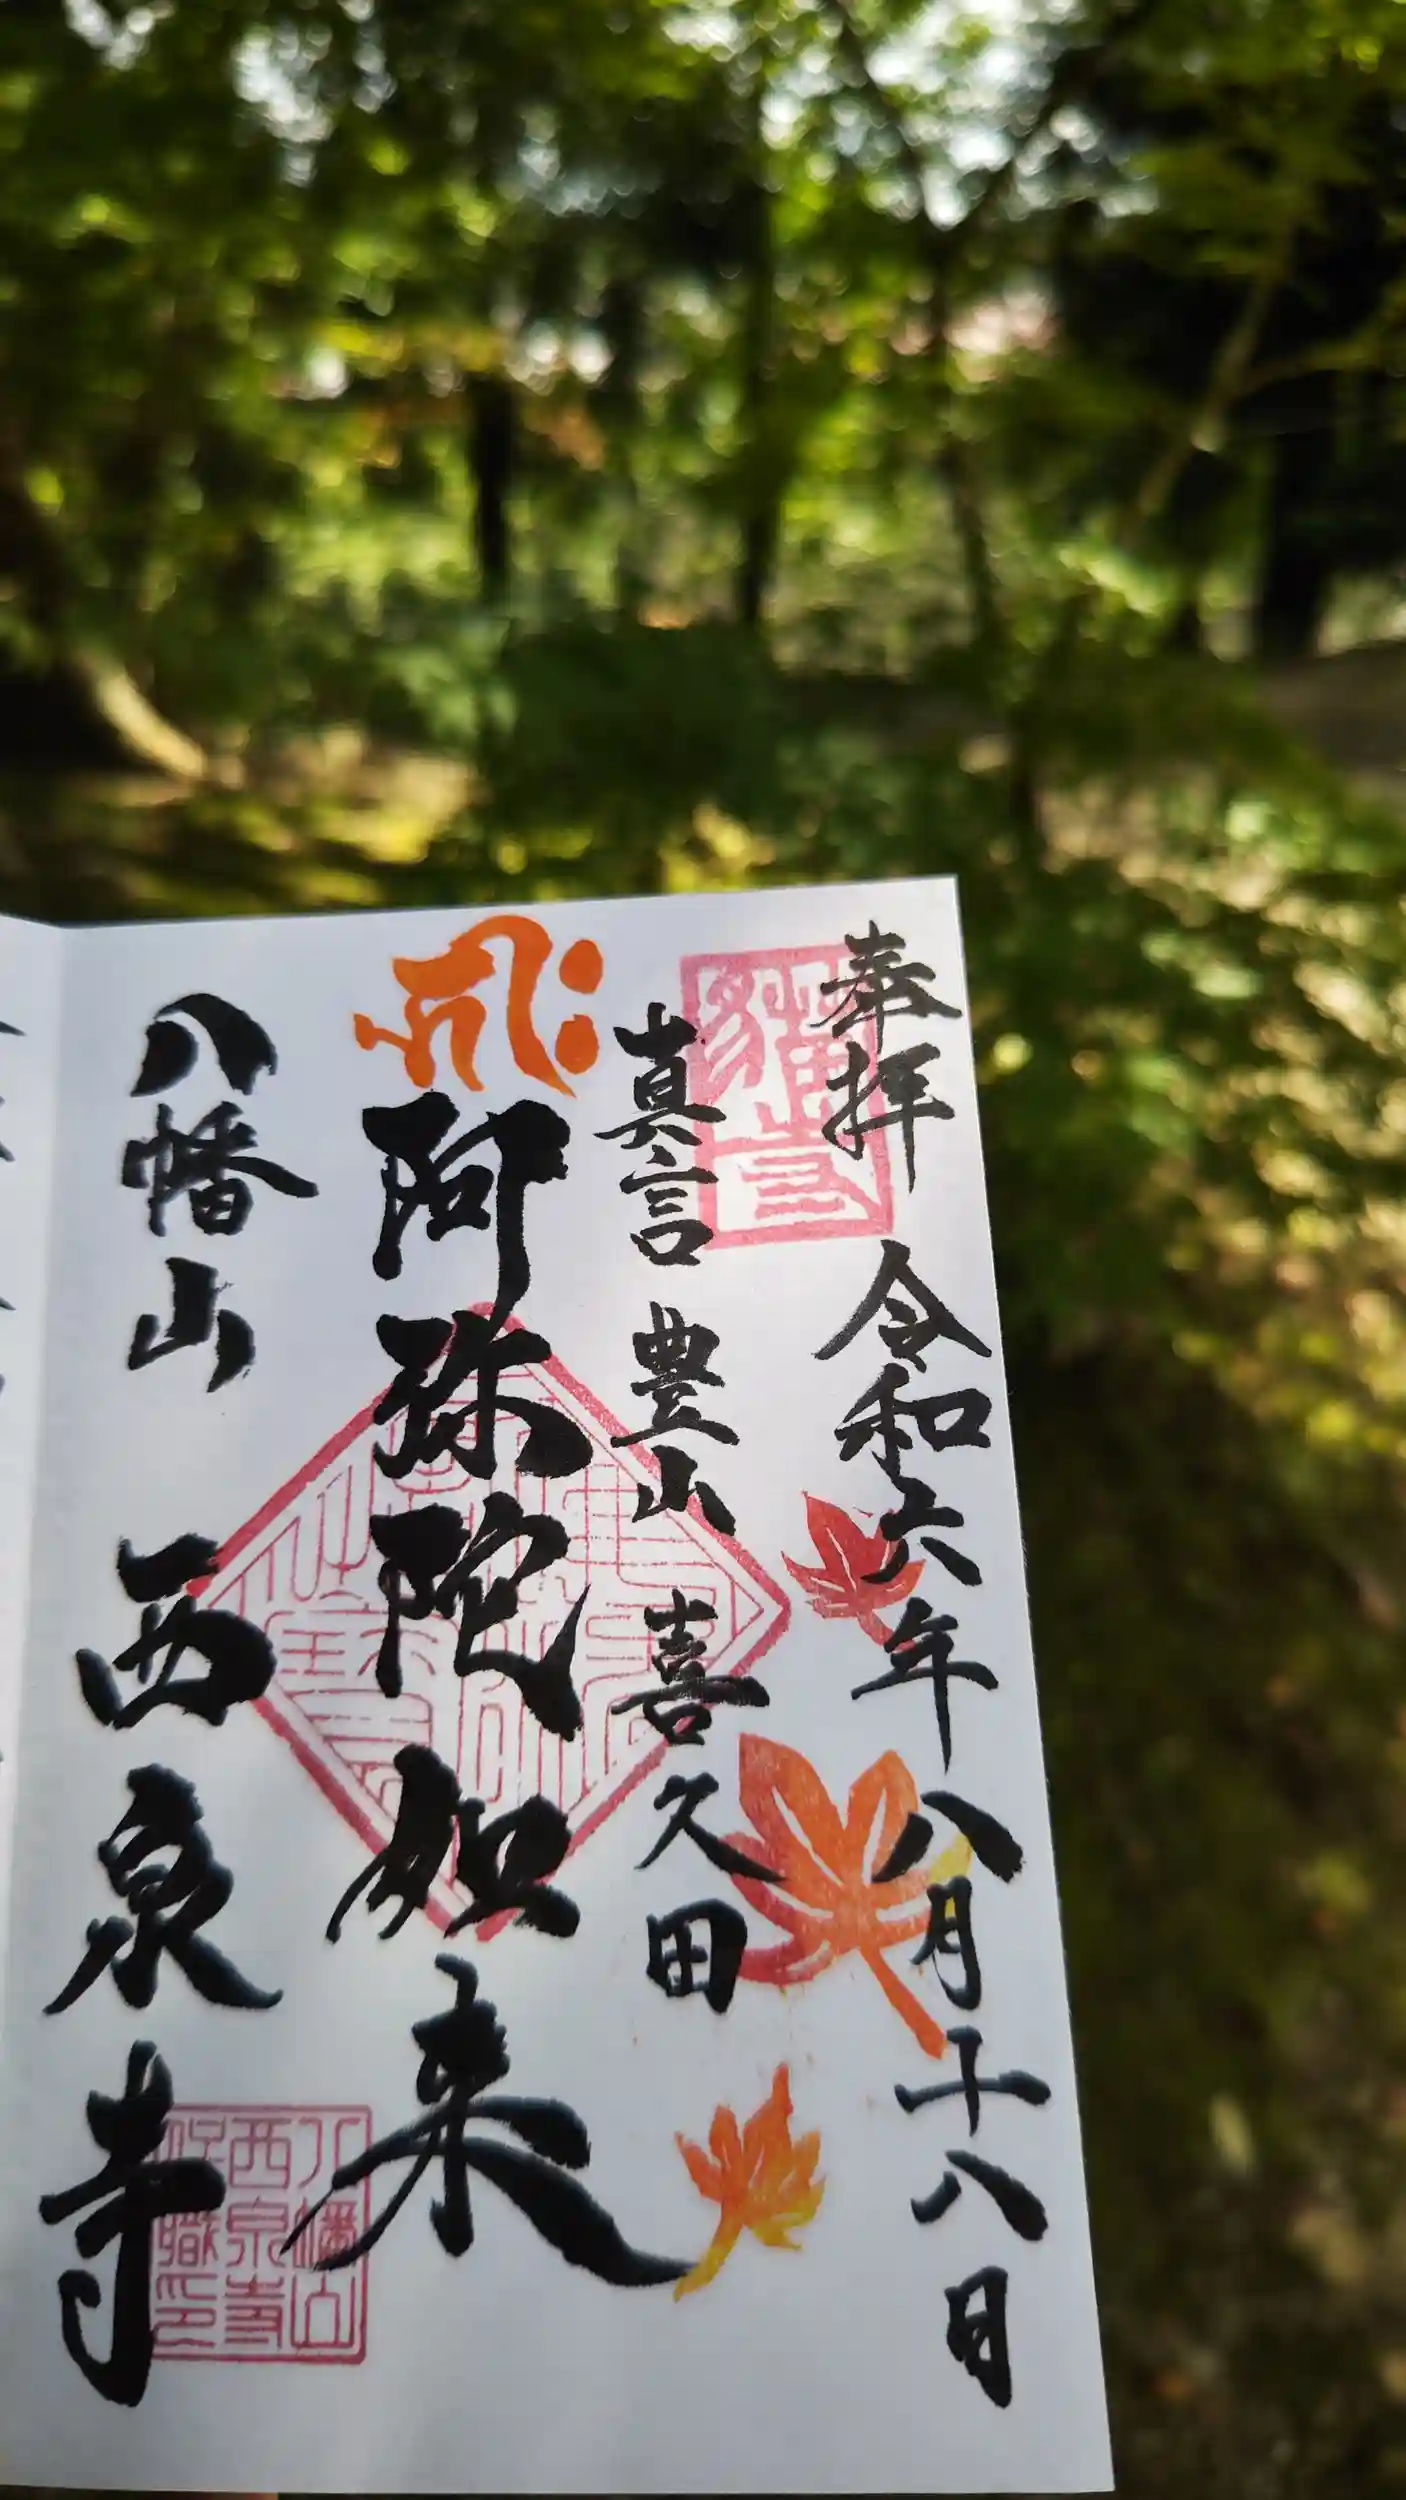 奉拝 令和六年八月十八日
真言 豊山 喜久田
阿弥陀如来
八幡山 西泉寺
八幡山
西泉寺
職印